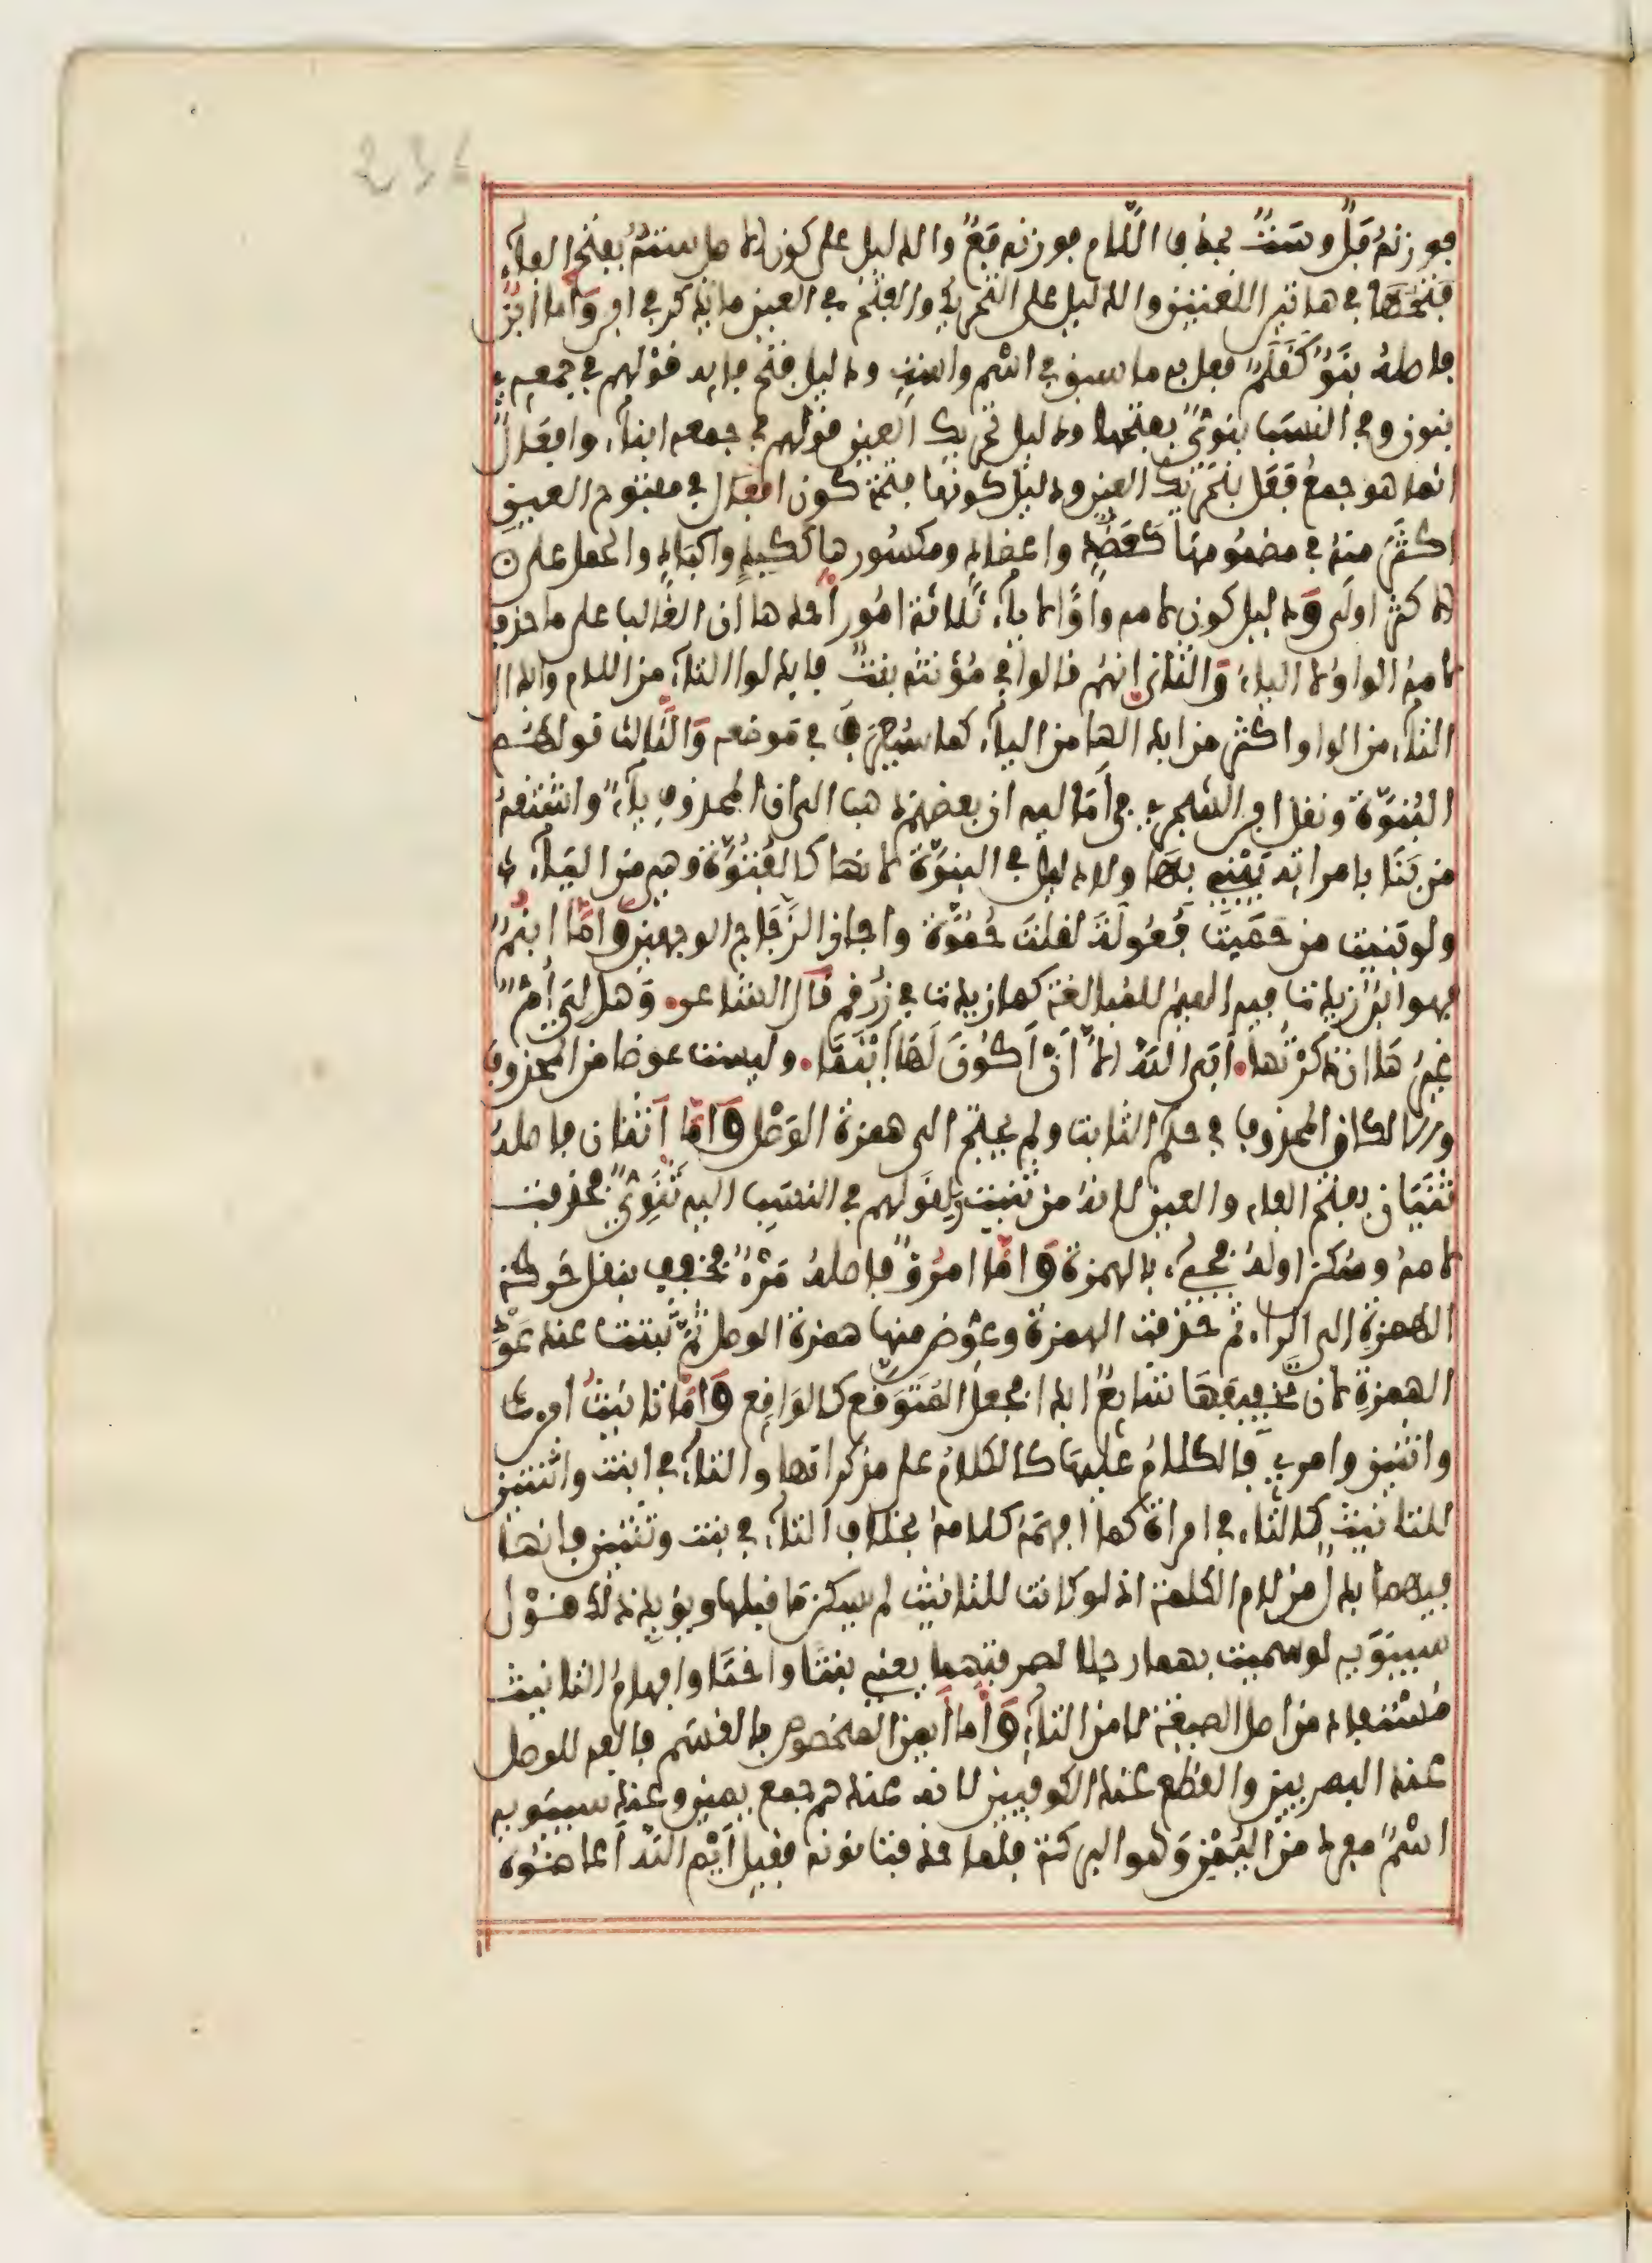 فوزنهُ فَلٌ وسَتٌ بحذف اللّام فوزنه فَعٌ والدليل على كون الاصل سَتَهٌ بفتح الفاء
فَتْحُهَا في هاتين اللغتين والدليل على التحريك والفتح في العين ما يذكر في ابن وَأما ابنٌ
فاصلهُ بَنَوٌ كَقَلَمٌ فعل به ما سبق في اسْم واست ودليل فتح فايه قولهم في جمعه
بنون وفي النسَب بَنَوِيٌّ بفتحها ودليل تحريك العين قولهم في جمعه ابناء وافعَالٌ
انما هو جمعُ فَعَل بتحْريك العين ودليل كونها فتحة كون افعال في مفتوح العين
اكثرَ منهُ في مضمُومهَا كَعَضُدٍ واعضادٍ ومكسُورها كَكَبِدٍ واكبادٍ والحمل على
الاكثر اولى وَدليل كون لامه واوًا لا ياء ثلاثة امُور احدها ان الغالب على ما حذف
لامهُ الواوُ لا الياء وَالثاني انهُم قالوا في مُؤَنثه بنتٌ فابدلوا التاء من اللام وابدال
التاء من الواو اكثر من ابدالها من الياء كما سَيَجيء في مَوضعه وَالثالث قولهُم
البُنُوَّة ونقل ابن الشجري في أمَاليه ان بعضهم ذهب الى ان المحذوف ياءٌ واشتقهُ
من بَنَى بامراته يَبْنِي بهَا ولا دليل في البنوَّة لانها كالفُتُوَّة وهي من الياء
ولو بَنَيت من حَمَيت فُعُولَةً لقلتَ حُمُوَّة واجاز الزجّاج الوجهين وَامَّا ابنُمٌ
فهو ابنٌ زيدت فيه الميم للمُبالغة كما زيدت في زُرْقم قال الشاعر وَهل لِيَ أُمٌّ
غيرُهَا ان ذكَرْتُهَا أبى اللهُ الّا أنْ أكُونَ لَهَا ابْنَمَا وليست عوضا من المحذوف
والا لكان المحذوف في حكم الثابت ولم يحتج الى همزة الوَصْل وَامَّا اثنان فاصله
ثنَيَان بفتح الفاء والعين لانهُ من ثنيت ولقولهم في النسَب اليه ثَنَوِيٌّ فحذفت
لامهُ وسُكن اولهُ فجيء بالهمزة وَامّا امرُؤٌ فاصلهُ مَرْءٌ فخفف بنقل حَركة
الهمزةِ الى الراء ثم حُذفت الهمزة وعوِّض منها همزة الوصل ثمّ ثبتت عند عَوْد
الهمزةِ لان تخفيفهَا شايعٌ ابدا فجعل المتوَقع كالوَاقِع وَامّا تانيثُ ابن
واثنين وامرئ فالكلامُ عليهَا كالكلامُ على مذكراتها والتاء في ابنت واثنتين
للتانيث كالتاء في امراة كما افهمَهُ كلامهُ بخلاف التاء في بنت وثنتين فانها
فيهما بدل من لام الكلمة اذ لو كانت للتانيث لم يسكن مَا قبلها ويؤيد ذلك قول
سيبَوَيه لو سميت بهما رجلا لصرفتهما يعني بنتًا واختًا وافهامُ التانيث
مُسْتفاد من اصل الصيغة لا من التاء وَأما أَيمن المخصوص بالقسَم فالفه للوصل
عند البصريين والقطع عند الكوفيين لانه عندهم جمع يمين وعند سيبَوَيه
اسْمٌ مفرد من اليُمْن وَهو البركة فلما حذفت نونه فقيل أَيْم الله أعاضوه